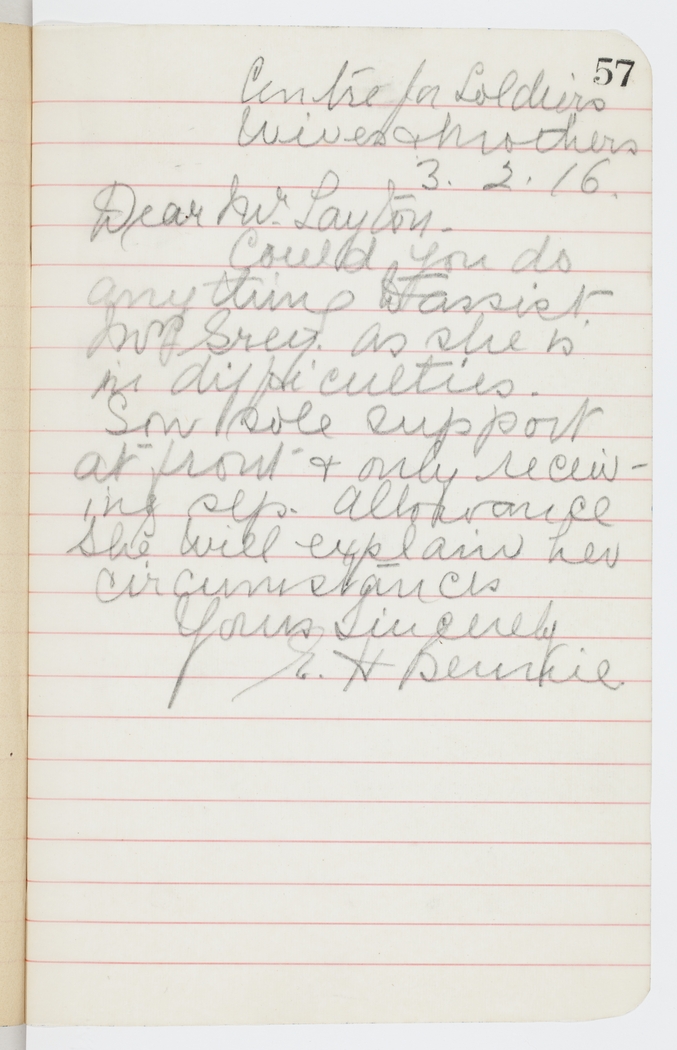 57
Centre for Soldiers
Wives & Mothers
3. 2. 16.
Dear Mr. Layton.
Could you do
anything to assist
Mrs Grey. as she is
in difficulties.
Son sole support
at front & only receiv-
ing sep. allowance
She will explain her
circumstances
Yours sincerely
E. H Bennie